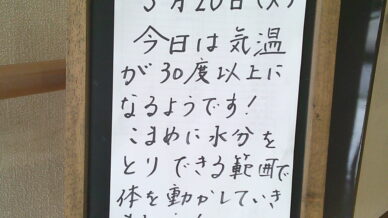 5月20日(火)
今日は気温
が30度以上に
なるようです!
こまめに水分を
とりできる範囲で
体を動かしていき